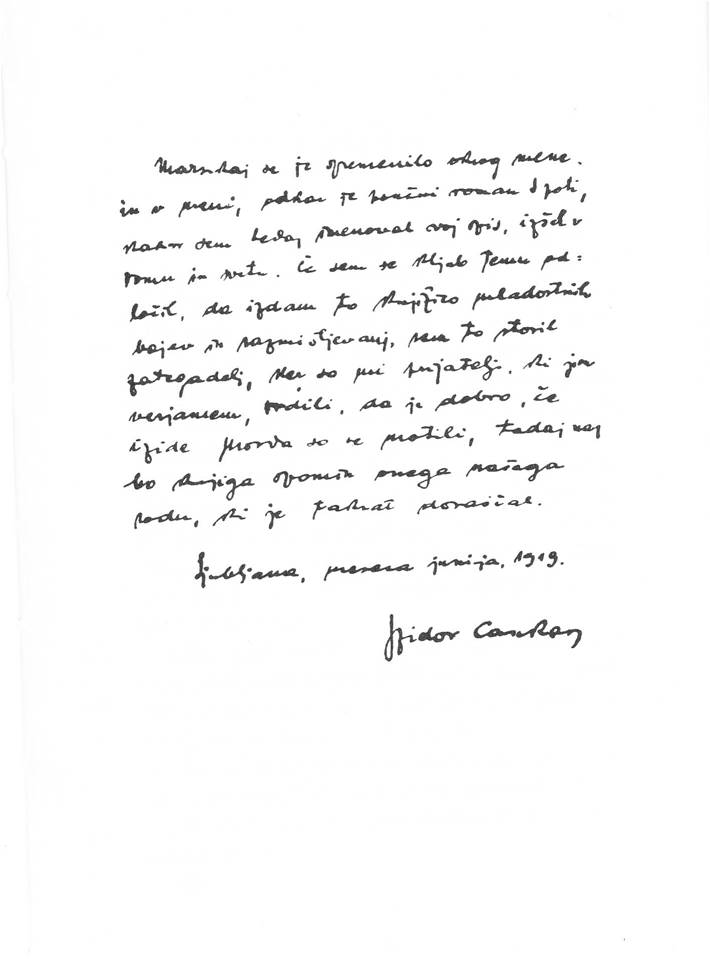 Marsikaj se je spremenilo okrog mene
in v meni, odkar je ta roman S poti,
kakor sem tedaj imenoval svoj spis, izšel v
Domu in svetu. Če sem se kljub temu od=
ločil, da izdam to knjižico mladostnih
bojev in razmišljevanj, sem to storil
zategadelj, ker so mi prijatelji, ki jim
verjamem, trdili, da je dobro, če
izide Morda so se motili, tedaj naj
bo knjiga spomin onega našega
rodu, ki je takrat doraščal.
Ljubljana, meseca junija, 1919.
Izidor Cankar